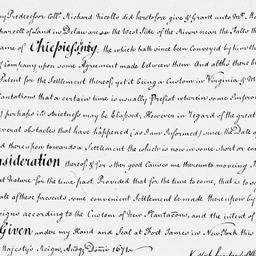 my Predecessor Coll. Richard Nicolls did heretofore give & Grant unto Mr. He
parcell of Land in Delaware on the West Side of the River near the Falls th
name of Chiepiessing, the which hath since been Conveyed by him the
of Company upon some Agreement made between them. And altho there be
Patent for the Settlement thereof, yet it being a Custom in Virginia & M
Plantations that a certain time is usually Prefixt wherein some Improvem
perhaps its Strictness may be blamed, However in Regard of the great
several obstacles that have happened (as I am Informed) since the Date of
and thereupon towards a Settlement the which is now in some sort or con
nsideration thereof & for other good Causes me thereunto moving I
at Nature for the time past. Provided that for the time to come, that is to
ate of these presents, some convenient Settlement be made thereupon by
ssigns according to the Custom of New Plantations, and the intent of
Given under my Hand and Seal at Fort James in New York this
Majesty's Reign, Annoq Domi 1671